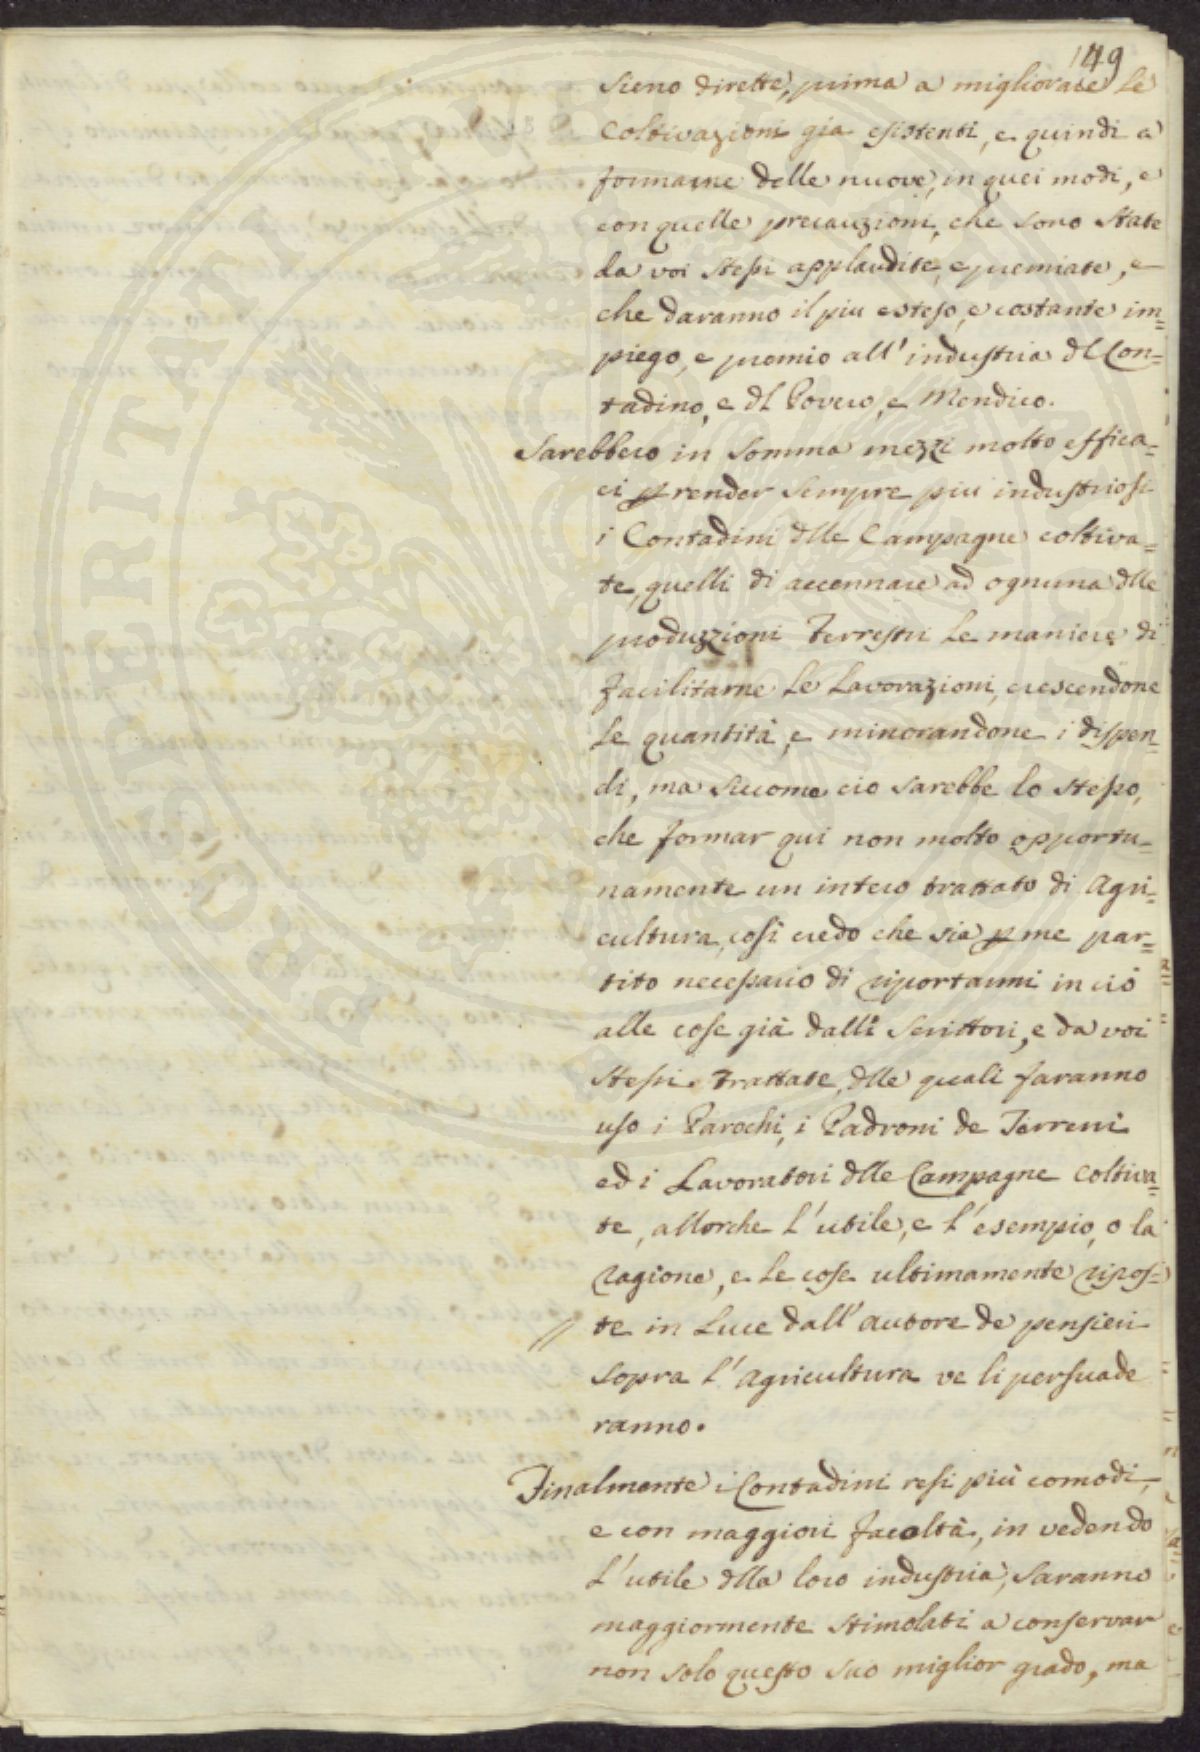 149
sieno dirette, prima a migliorare le
Coltivazioni gia esistenti, e quindi a
formarne delle nuove, in quei modi, e
con quelle precauzioni, che sono state
da voi stessi applaudite, e premiate, e
che daranno il piu esteso, e costante im=
piego, e premio all' industria dl Con=
tadino, e dl Povero, e Mendico.
Sarebbero in somma mezzi molto effica=
ci p render sempre piu industriosi
i Contadini dlle Campagne coltiva=
te, quelli di accennare ad ognuna dlle
produzzioni Terrestri le maniere di
facilitarne le Lavorazioni, crescendone
le quantità, e minorandone i dispen=
di, ma siccome cio sarebbe lo stesso,
che formar qui non molto opportu=
namente un intero trattato di Agri=
cultura, cosi credo che sia p me par=
tito necessario di riportarmi in ciò
alle cose già dalli Scrittori, e da voi
stessi trattate, dlle quali faranno
uso i Parochi, i Padroni de Terreni
ed i Lavoratori dlle Campagne coltiva=
te, allorche l' utile, e l' esempio, o la
ragione, e le cose ultimamente ripos=
// te in Luce dall' autore de pensieri
sopra l' Agricultura ve li persuade
ranno.
Finalmente i Contadini resi più comodi,
e con maggiori facoltà, in vedendo
l' utile dlla loro industria, saranno
maggiormente stimolati a conservar
non solo questo suo miglior grado, ma
PROSPERITATI PUBLICAE